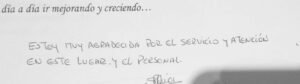 día a día ir mejorando y creciendo...
ESTOY MUY AGRADECIDA POR EL SERVICIO Y ATENCIÓN
EN ESTE LUGAR Y EL PERSONAL